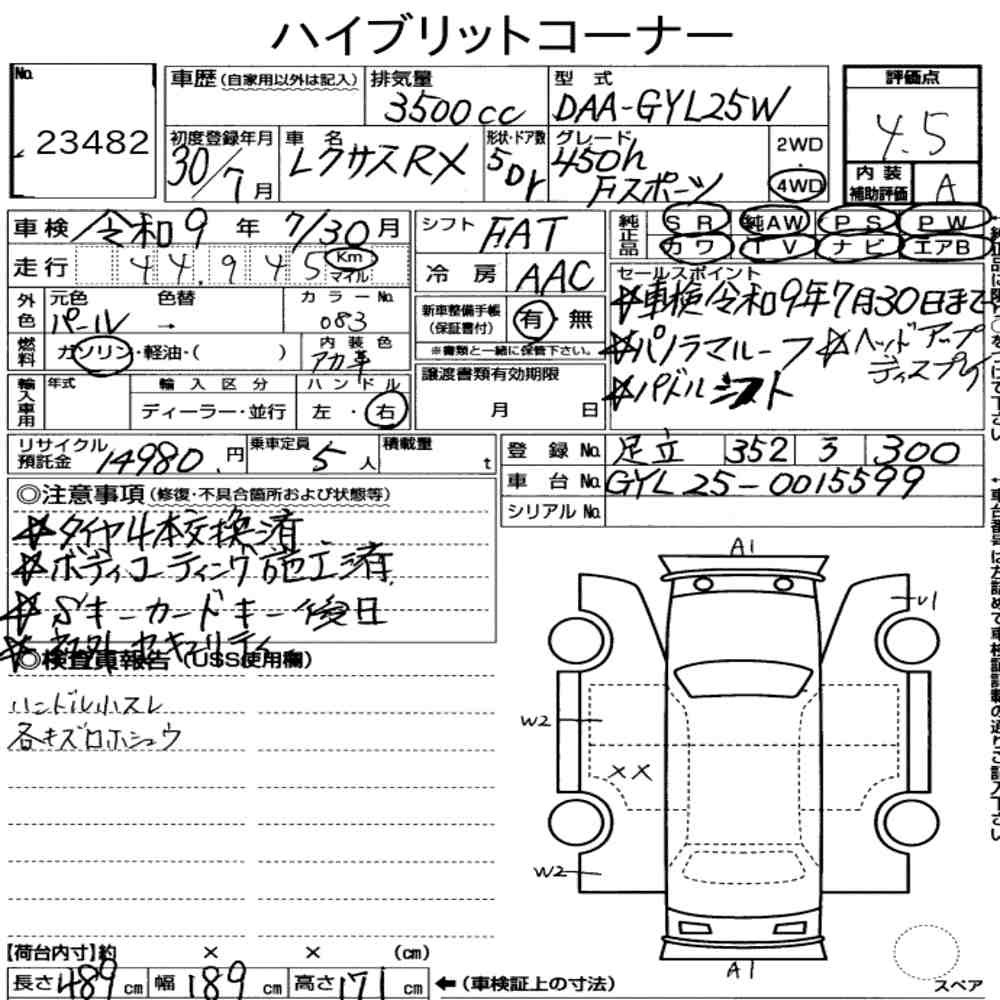 ハイブリットコーナー
No.
23482
車歴(自家用以外は記入)
排気量
3500cc
型式
DAA-GYL25W
評価点
4.5
初度登録年月
30/7月
車名
レクサスRX
形状・ドア数
5Dr
グレード
450h
Fスポーツ
2WD
・
4WD
内装
補助評価
A
車検 令和9年 7/30月
シフト
FAT
純正品
SR 純AW PS PW
カワ TV ナビ エアB
走行
44.945
Km
マイル
冷房
AAC
セールスポイント
☆車検令和9年7月30日まで
☆パノラマルーフ ☆ヘッドアップ
ディスプレイ
☆パドルシフト
外色
元色 色替 カラーNo.
パール → 083
新車整備手帳
(保証書付)
有・無
※書類と一緒に保管下さい。
燃料
ガソリン・軽油・( )
内装色
アカ革
譲渡書類有効期限
月 日
輸入車用
年式
輸入区分
ハンドル
ディーラー・並行
左・右
リサイクル
預託金
14980.円
乗車定員
5人
積載量
t
登録No.
足立 352 3 300
車台No.
GYL25-0015599
シリアルNo.
◎注意事項(修復・不具合箇所および状態等)
☆タイヤ4本交換済
☆ボディコーティング施工済
☆Sキーカードキー後日
☆社外セキュリティ
◎検査員報告(USS使用欄)
ハンドル小スレ
各キズロホシュウ
A1
U1
W2
XX
W2
A1
スペア
【荷台内寸】約 × × (cm)
長さ489cm 幅189cm 高さ171cm
←(車検証上の寸法)